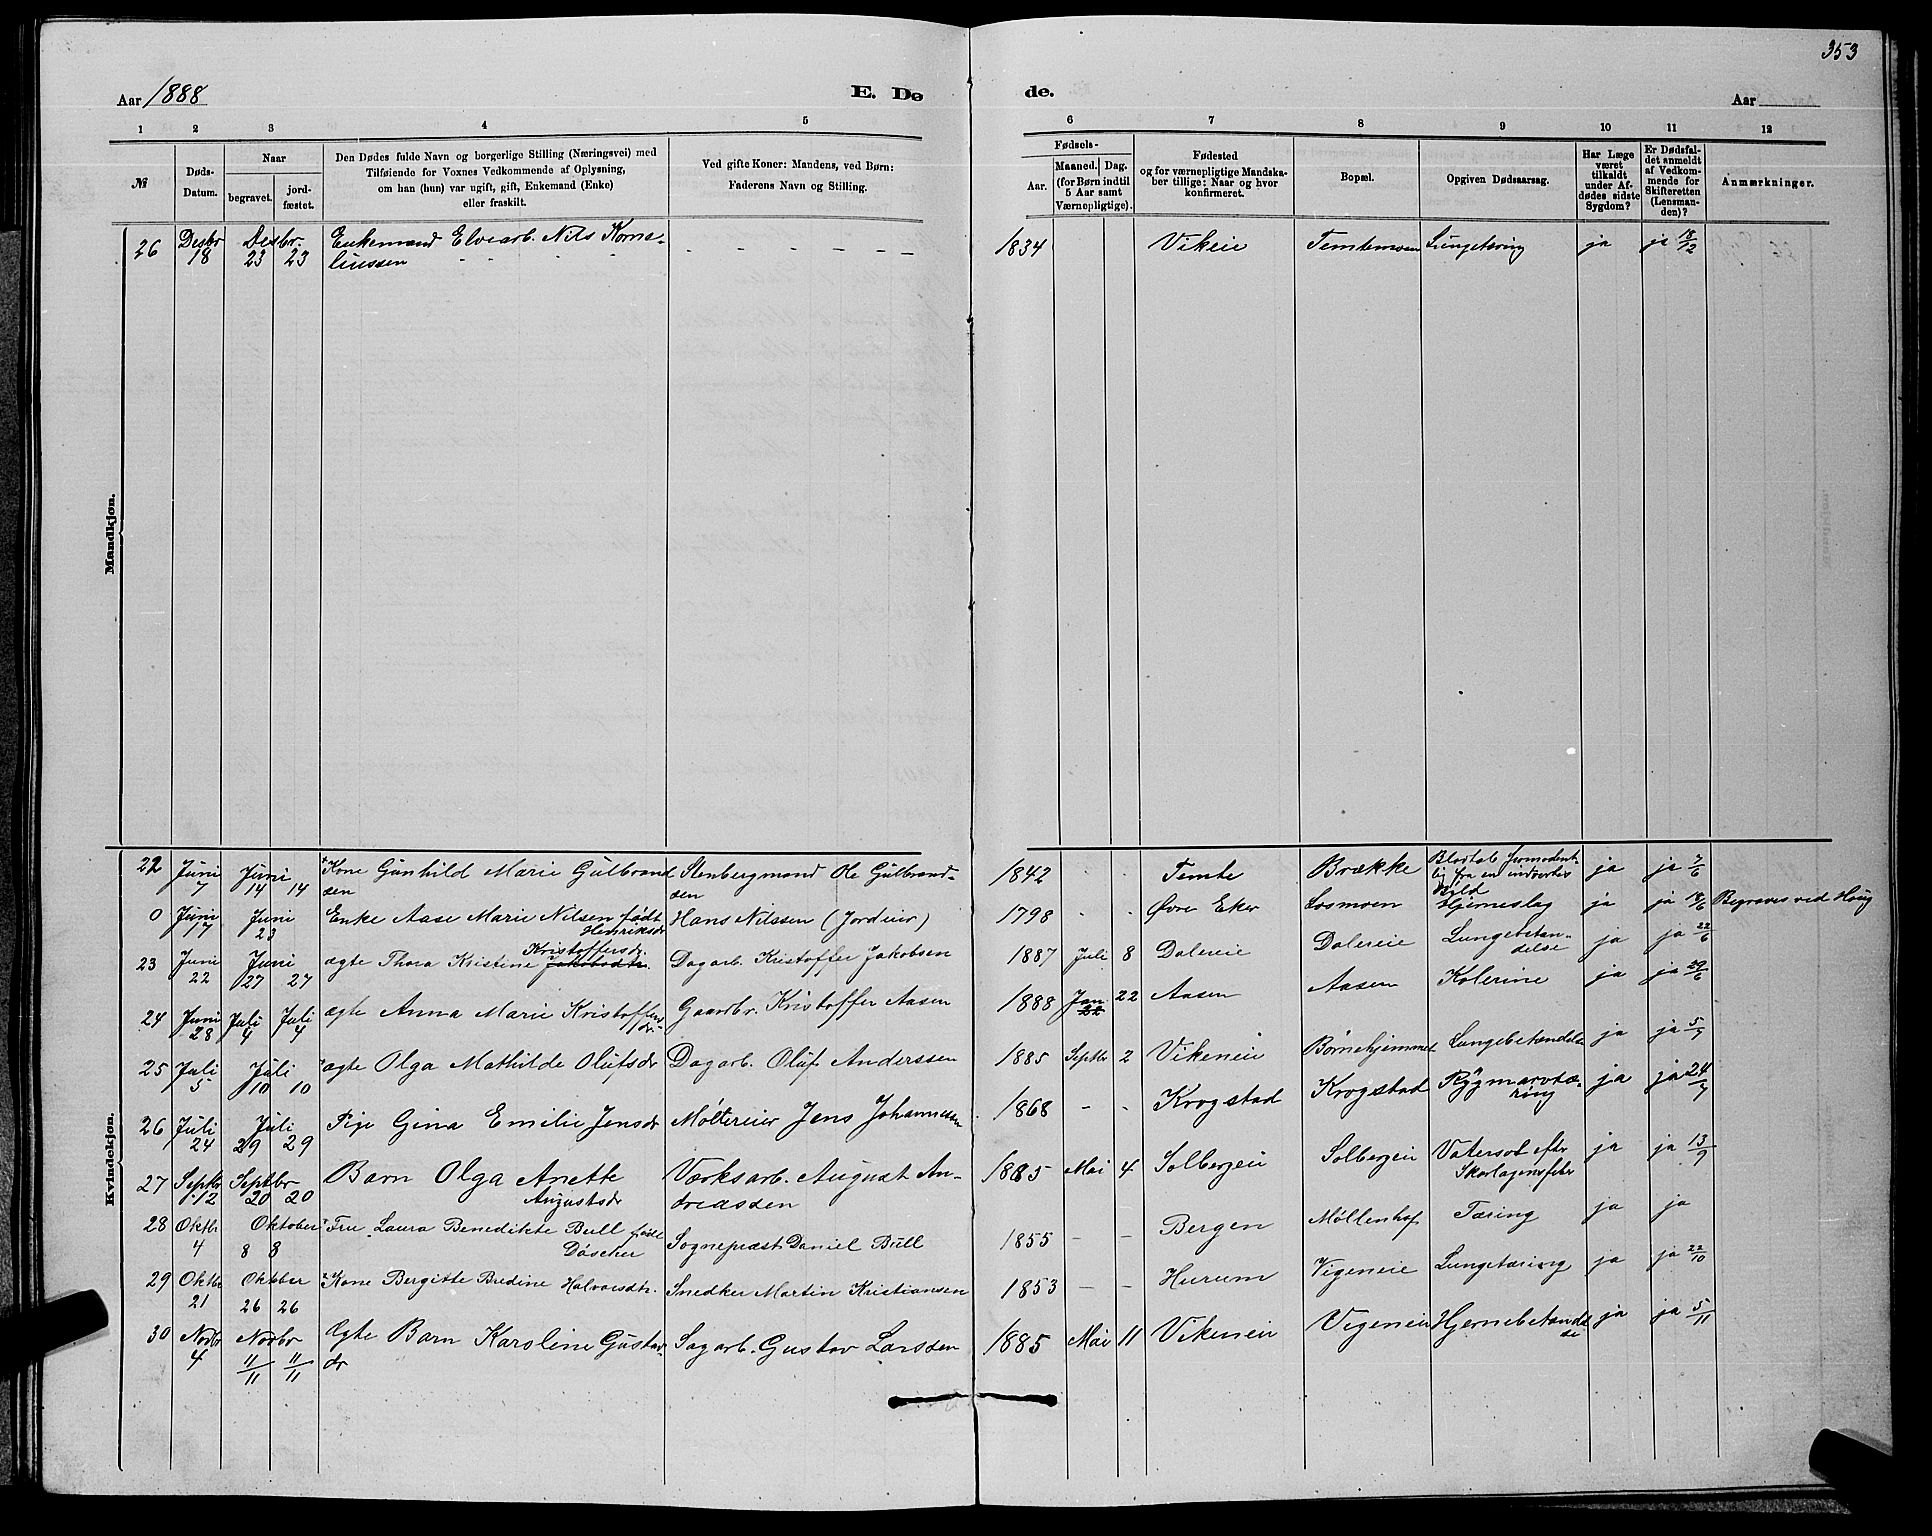 353
Aar 1888 E. Dø de. Aar
1 2 3 4 5 6 7 8 9 10 11 12
№ Døds-Datum. Naar begravet. jordfæstet. Den Dødes fulde Navn og borgerlige Stilling (Næringsvei) med Tilføiende for Voxnes Vedkommende af Oplysning, om han (hun) var ugift, gift, Enkemand (Enke) eller fraskilt. Ved gifte Koner: Mandens, ved Børn: Faderens Navn og Stilling. Fødsels- Aar. Maaned. Dag. (for Børn indtil 5 Aar samt Værnepligtige). Fødested og for værnepligtige Mandskaber tillige: Naar og hvor konfirmeret. Bopæl. Opgiven Dødsaarsag. Har Læge været tilkaldt under Afdødes sidste Sygdom? Er Dødsfaldet anmeldt af Vedkommende for Skifteretten (Lensmanden)? Anmærkninger.
Mandkjøn.
26 Desbr 18 Desbr. 23 23 Enkemand Elvearb. Nils Korneliussen - - - - - - 1834 Vikeie Temtemoen Lungetæring ja ja 18/12
Kvindekjøn.
22 Juni 7 Juni 14 14 Kone Gunhild Marie Gulbrandsen Stenbergmand Ole Gulbrandsen 1842 Temte Brække Blodtab formodentlig fra en indvortes Byld ja ja 7/6
0 Juni 17 Juni 23 Enke Aase Marie Nilsen født Henriksdr Hans Nilssen (Jordeier) 1798 Øvre Eker Losmoen Hjerneslag ja ja 18/6 Begraves ved Houg
23 Juni 22 Juni 27 27 ægte Thora Kristine Jakobsdtr. Kristoffersdr. Dagarb. Kristoffer Jakobsen 1887 Juli 8 Daleeie Daleeie Lungebetændelse ja ja 22/6
24 Juni 28 Juli 4 Juli 4 ægte Anna Marie Kristoffersdr. Gaardbr. Kristoffer Aasen 1888 Jan. 22 22 Aasen Aasen Kolerine ja ja 29/6
25 Juli 5 Juli 10 10 ægte Olga Mathilde Olufsdr Dagarb. Oluf Anderssen 1885 Septbr 2 Vikeneie Børnehjemmet Lungebetændelse ja ja 5/7
26 Juli 24 Juli 29 29 Pige Gina Emilie Jensdr Møllereier Jens Johannessen 1868 - - Krogstad Krogstad Rygmarvtæring ja ja 24/7
27 Septbr 12 Septbr 20 20 Barn Olga Anette Augustsdr Værksarb. August Andreassen 1885 Mai 4 Solbergeie Solbergeie Vatersot efter Skarlagensfeber ja ja 13/9
28 Oktbr 4 Oktober 8 8 Fru Laura Benedikte Bull født Døscher Sogneprest Daniel Bull 1855 - - Bergen Møllenhof Tæring ja ja
29 Oktbr 21 Oktober 26 26 Kone Bergitte Bredine Halvorsdtr. Snedker Martin Kristiansen 1853 - - Hurum Vigeneie Lungetæring ja ja 22/10
30 Novbr 4 Novbr 11/11 11/11 Ægte Barn Karoline Gustavdr Sagarb. Gustav Larssen 1885 Mai 11 Vikeneie Vigeneie Hjernebetændelse ja ja 5/11